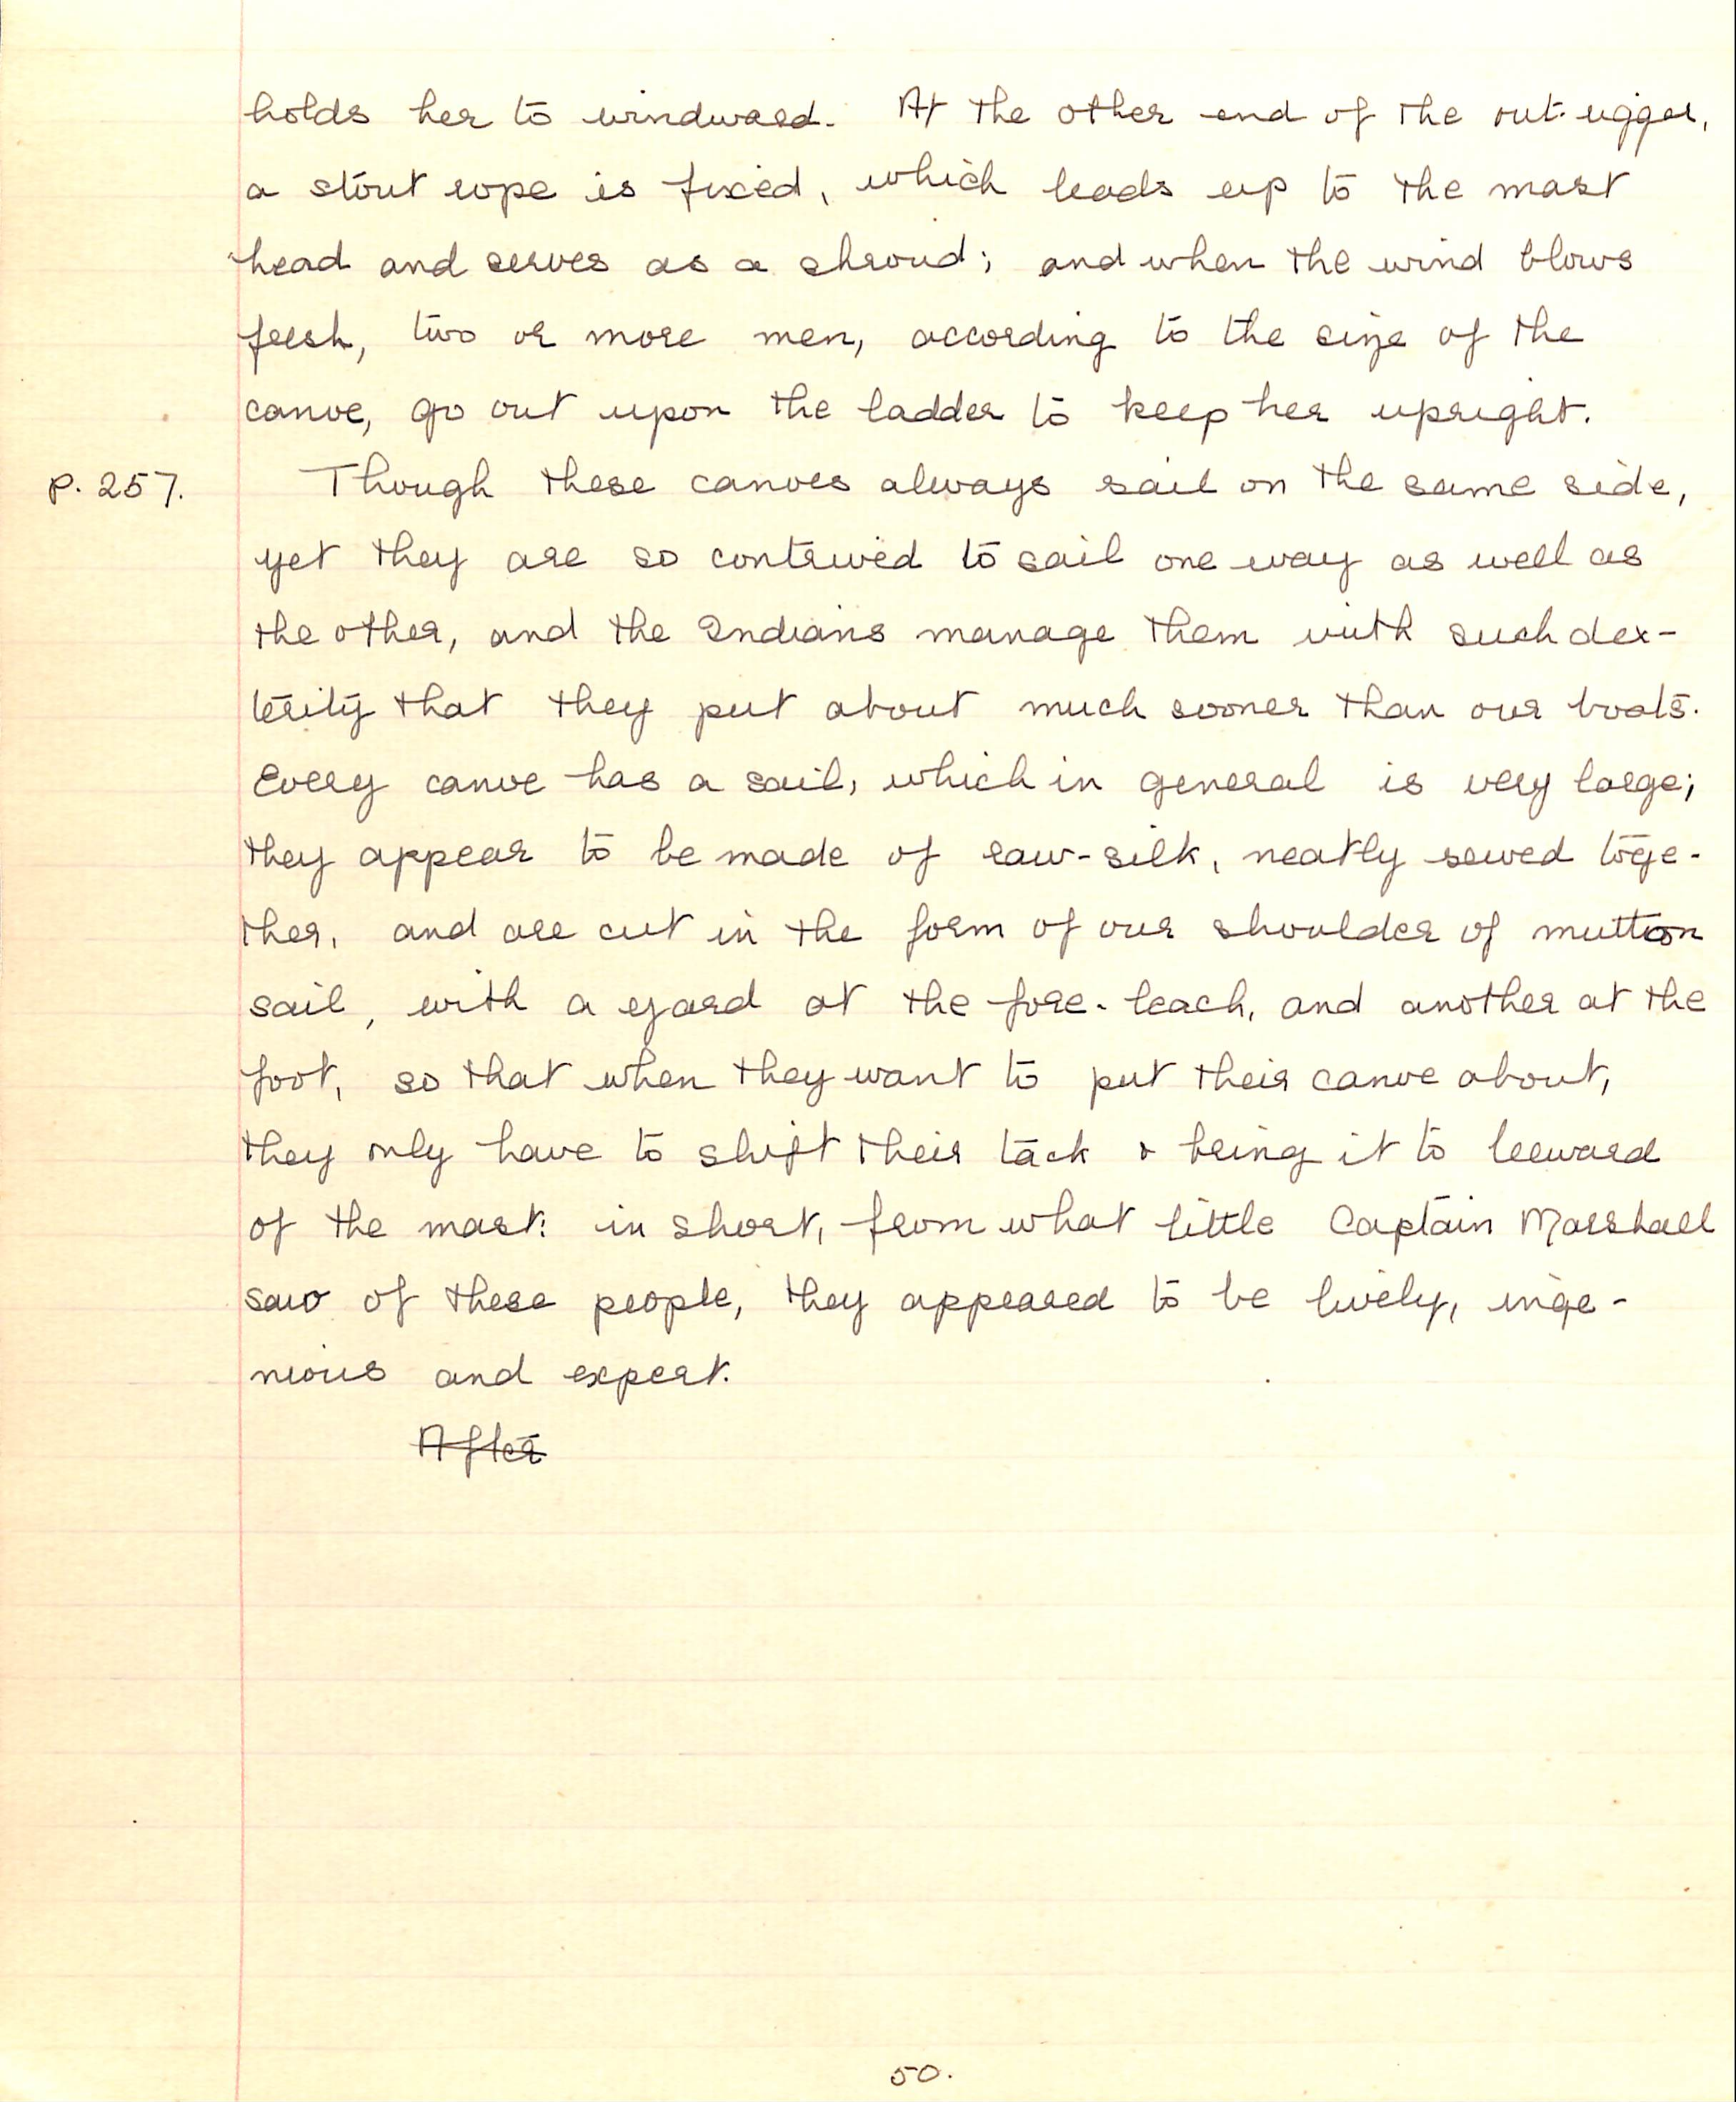 holds her to windward. At the other end of the out-rigger,
a stout rope is fixed, which leads up to the mast
head and serves as a shroud; and when the wind blows
fresh, two or more men, according to the size of the
canoe, go out upon the ladder to keep her upright.
p. 257. Though these canoes always sail on the same side,
yet they are so contrived to sail one way as well as
the other, and the Indians manage them with such dex-
terity that they put about much sooner than our boats.
Every canoe has a sail, which in general is very large;
they appear to be made of raw-silk, neatly sewed toge-
ther, and are cut in the form of our shoulder of mutton
sail, with a yard at the fore-leach, and another at the
foot, so that when they want to put their canoe about,
they only have to shift their tack & bring it to leeward
of the mast: in short, from what little Captain Marshall
saw of these people, they appeared to be lively, inge-
nious and expert.
After
50.